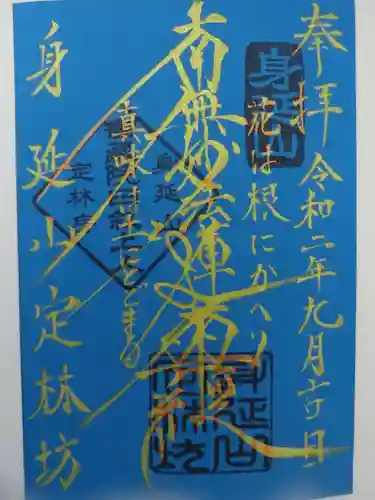 奉拝 令和二年九月廿日
身延山
花は根にかへり
南無妙法蓮華経
真味は土にとどまる
身延山
定林坊
身延山定林坊
身延山定林坊